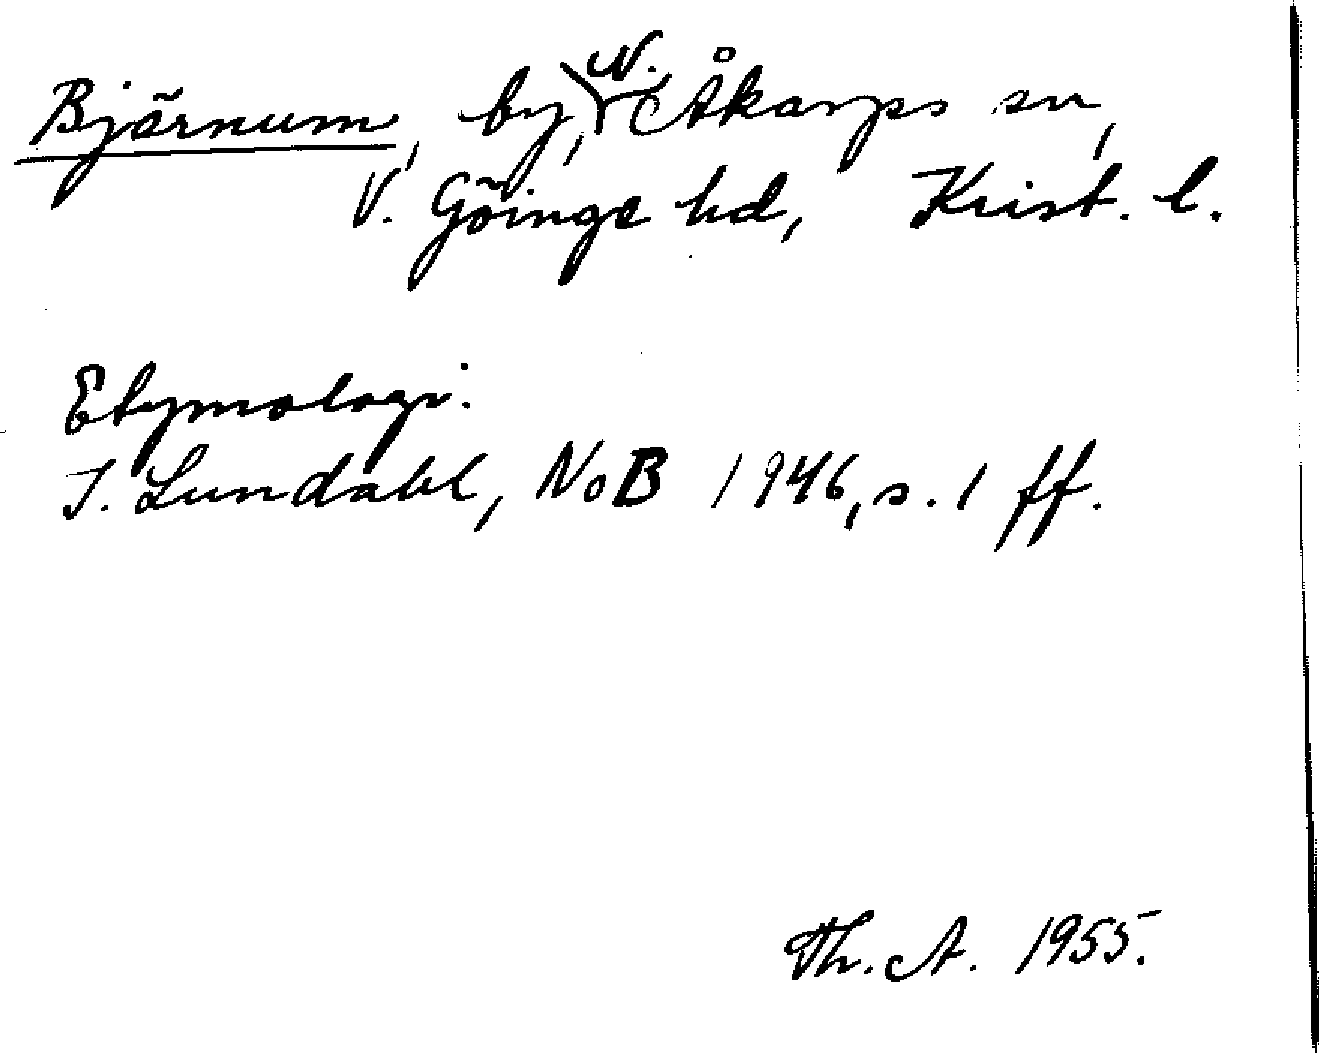 Bjärnum, by, N. Åkarps sn,
V. Göinge hd, Krist. l.
Etymologi:
I. Lundahl, NoB 1946, s. 1 ff.
Th. A. 1955.